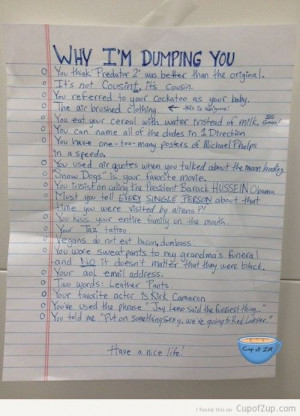 WHY I'M DUMPING YOU
You think "Predator 2" was better than the original.
It's not Cousint, its cousin.
You referred to your cockatoo as your baby.
The air brushed clothing. ← this is
You eat your cereal with water instead of milk.
You can name all of the dudes in 1 Direction
You have one-too-many posters of Michael Phelps
in a speedo.
You used air quotes when you talked about the moon landing
"Snow Dogs" is your favorite movie.
You insist on calling the President Barack HUSSEIN Obama
Must you tell EVERY SINGLE PERSON about that
time you were visited by aliens?!
You kiss your entire family on the mouth
Your Taz tattoo
Vegans do not eat bacon, dumbass.
You wore sweatpants to my grandma's funeral
and NO it doesn't matter that they were black.
Your aol email address.
Two words: Leather Pants
Your favorite actor is Kirk Cameron
You've used the phrase "Jay Leno said the funniest thing..."
You told me "Put on something sexy, we're going to Red Lobster."
Have a nice life!
Cup of ZUP
I found this on CupofZup.com